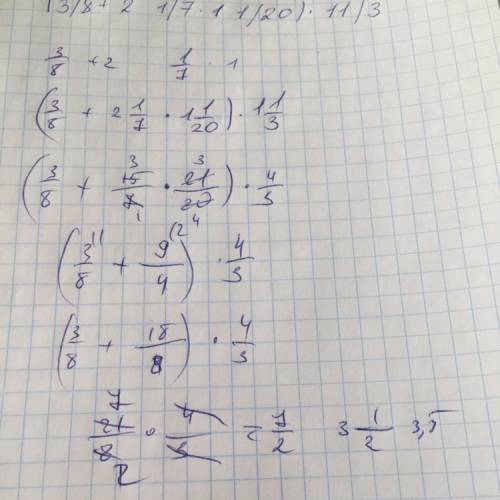 (3/8+ 2 1/7 · 1 1/20) · 1 1/3
3/8 + 2 1/7 · 1
(3/8 + 2 1/7 · 1 1/20) · 1 1/3
(3/8 + 15/7 · 21/20) · 4/3
(3/8 + 9/4) · 4/3
(3/8 + 18/8) · 4/3
21/8 · 4/3 = 7/2 3 1/2 3,5